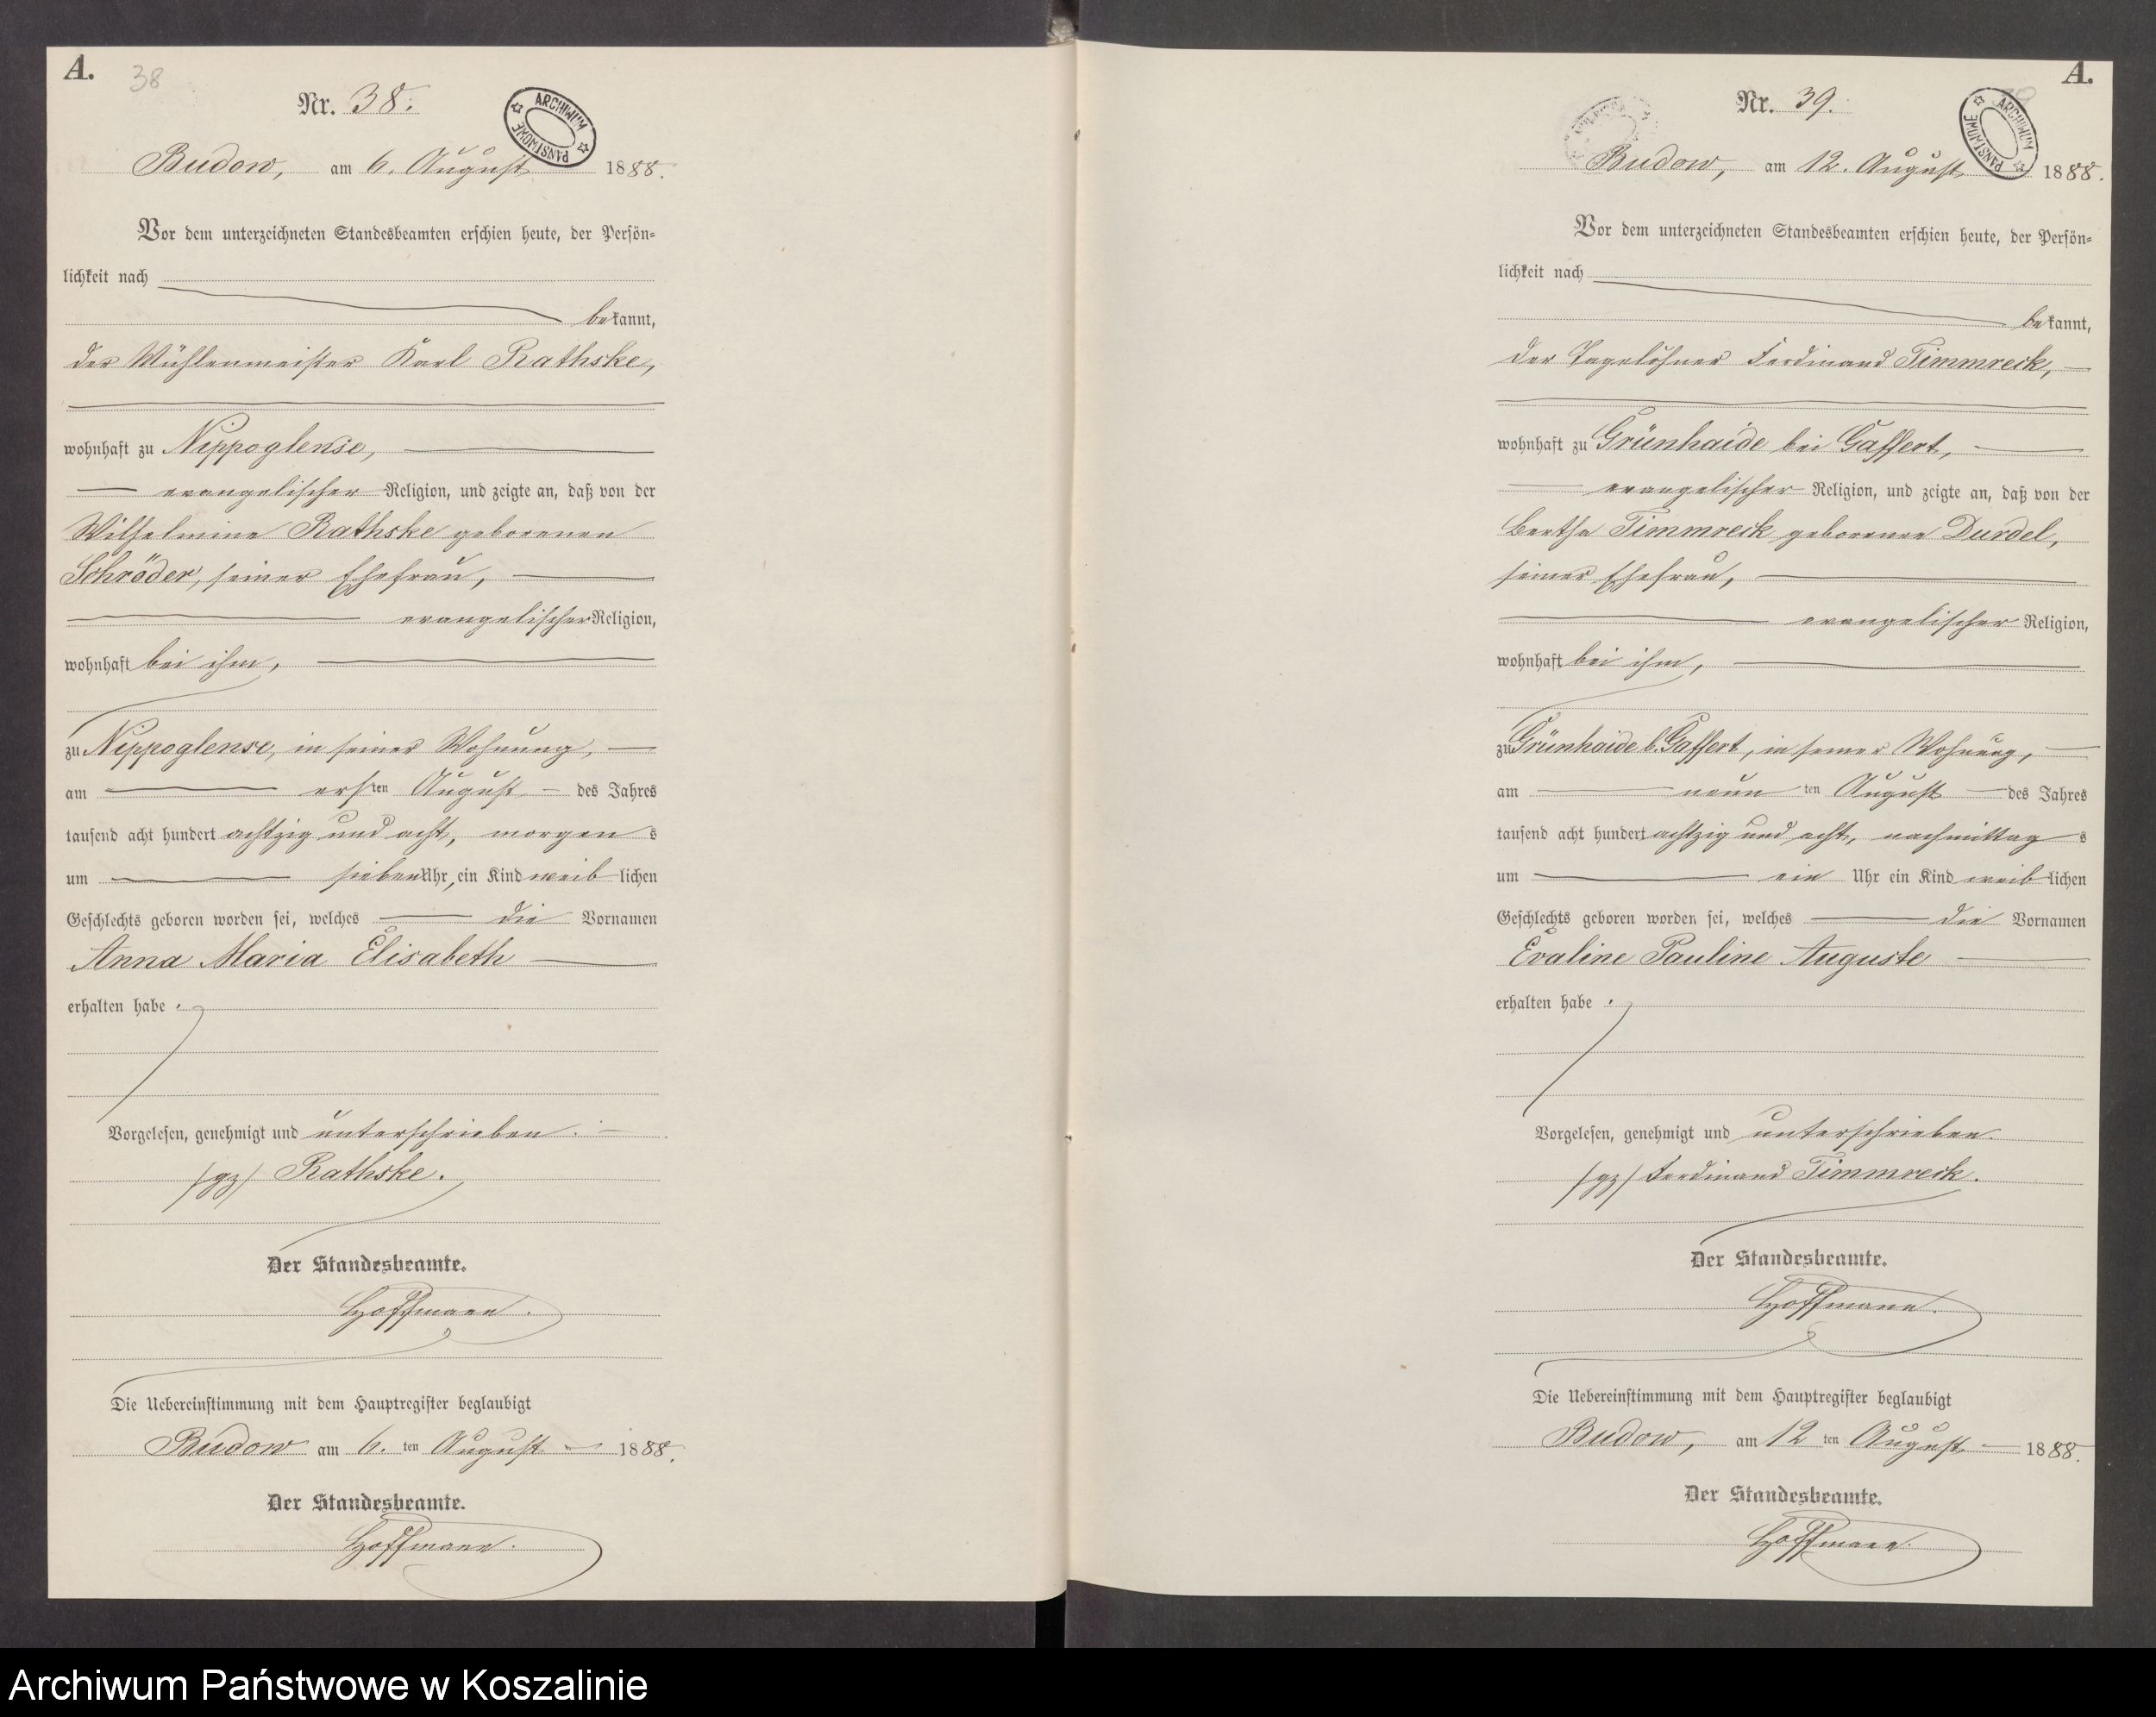 A.
38
Nr. 38.
ARCHIWUM PAŃSTWOWE
Budow, am 6. August 1888.
Vor dem unterzeichneten Standesbeamten erschien heute, der Persön-
lichkeit nach
bekannt,
der Mühlenmeister Karl Rathske,
wohnhaft zu Nippoglense,
evangelischer Religion, und zeigte an, daß von der
Wilhelmine Rathske geborenen
Schröder, seiner Ehefrau,
evangelischer Religion,
wohnhaft bei ihm,
zu Nippoglense, in seiner Wohnung,
am ersten August des Jahres
tausend acht hundert achtzig und acht, morgens
um sieben Uhr, ein Kind weiblichen
Geschlechts geboren worden sei, welches die Vornamen
Anna Maria Elisabeth
erhalten habe.
Vorgelesen, genehmigt und unterschrieben.
/gz/ Rathske.
Der Standesbeamte.
Hoffmann.
Die Uebereinstimmung mit dem Hauptregister beglaubigt
Budow am 6. ten August 1888.
Der Standesbeamte.
Hoffmann.
A.
Nr. 39.
ARCHIWUM PAŃSTWOWE
Budow, am 12. August 1888.
Vor dem unterzeichneten Standesbeamten erschien heute, der Persön-
lichkeit nach
bekannt,
der Tagelöhner Ferdinand Timmreck,
wohnhaft zu Grünhaide bei Gaffert,
evangelischer Religion, und zeigte an, daß von der
Bertha Timmreck geborenen Durdel,
seiner Ehefrau,
evangelischer Religion,
wohnhaft bei ihm,
zu Grünhaide b. Gaffert, in seiner Wohnung,
am neun ten August des Jahres
tausend acht hundert achtzig und acht, nachmittags
um ein Uhr ein Kind weiblichen
Geschlechts geboren worden sei, welches die Vornamen
Evaline Pauline Auguste
erhalten habe.
Vorgelesen, genehmigt und unterschrieben.
/gz/ Ferdinand Timmreck.
Der Standesbeamte.
Hoffmann.
Die Uebereinstimmung mit dem Hauptregister beglaubigt
Budow, am 12 ten August 1888.
Der Standesbeamte.
Hoffmann.
Archiwum Państwowe w Koszalinie